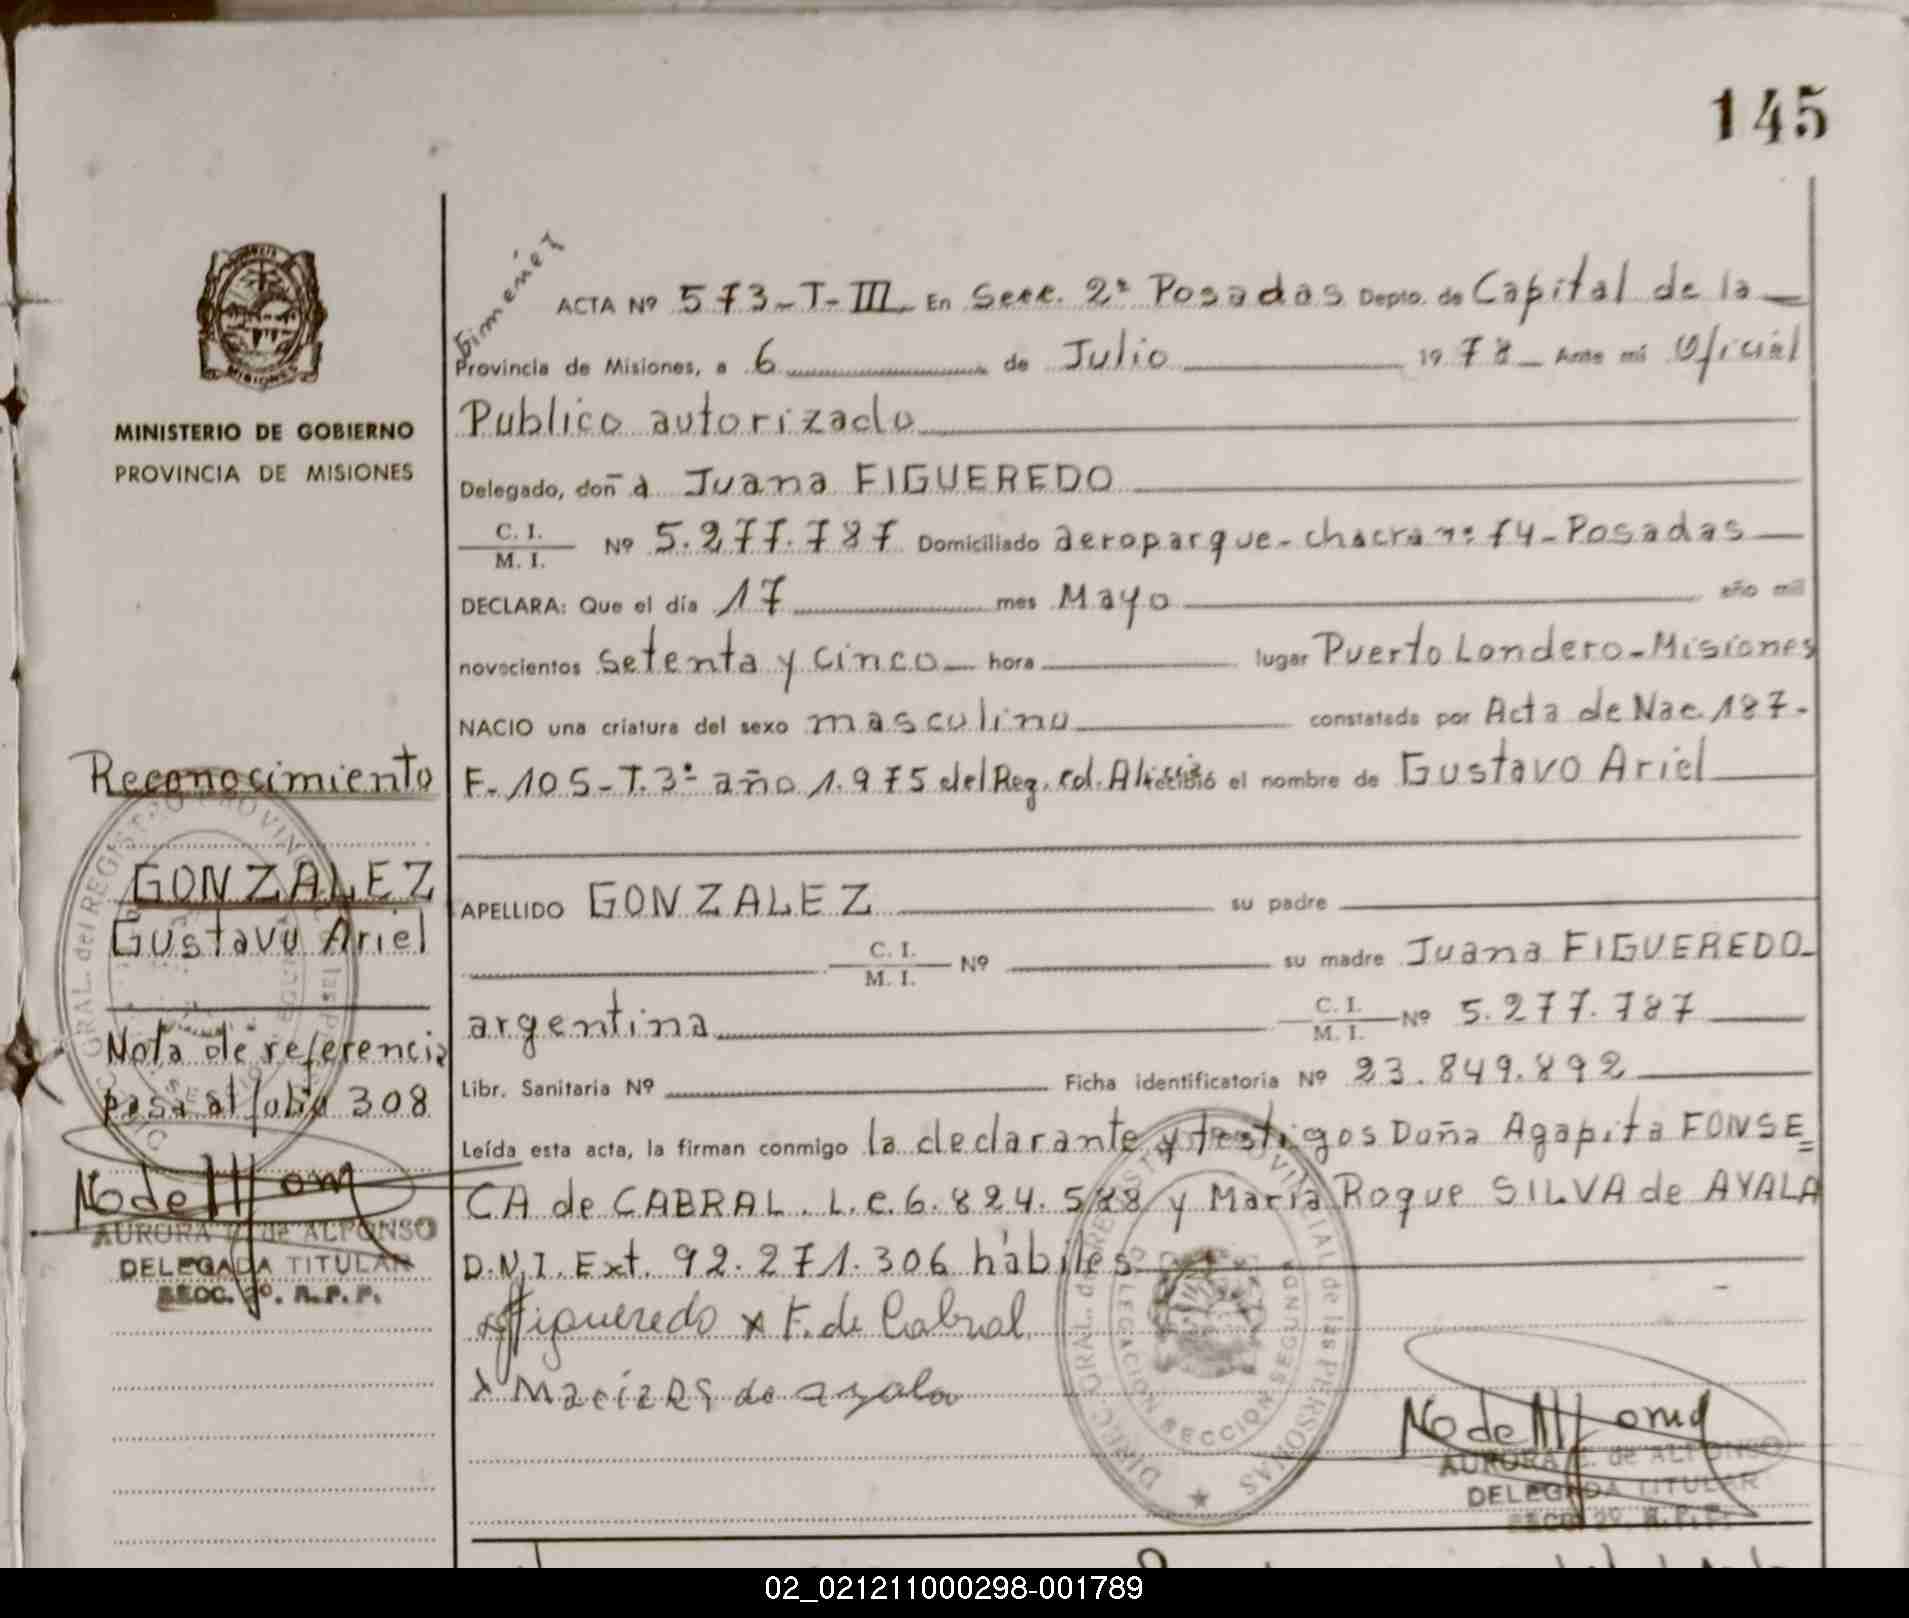 145
PROVINCIA
MISIONES
MINISTERIO DE GOBIERNO
PROVINCIA DE MISIONES
Reconocimiento
GONZALEZ
Gustavo Ariel
Nota de referencia
pasa al folio 308
AURORA E. de ALFONSO
DELEGADA TITULAR
SECC. 2º. R.P.P.
Gimenez
ACTA Nº 573-T-III En Secc. 2ª Posadas Depto. de Capital de la
Provincia de Misiones, a 6 de Julio 1978 Ante mí Oficial
Publico autorizado
Delegado, doña Juana FIGUEREDO
C. I.
M. I. Nº 5.277.787 Domiciliado aeroparque-chacra nº 74-Posadas
DECLARA: Que el día 17 mes Mayo año mil
novecientos setenta y cinco hora lugar Puerto Londero-Misiones
NACIO una criatura del sexo masculino constatada por Acta de Nac. 187-
F-105-T.3º año 1.975 del Reg. Col. recibió el nombre de Gustavo Ariel
APELLIDO GONZALEZ su padre
C. I.
M. I. Nº su madre Juana FIGUEREDO-
argentina C. I.
M. I. Nº 5.277.787
Libr. Sanitaria Nº Ficha identificatoria Nº 23.849.892
Leída esta acta, la firman conmigo la declarante y testigos Doña Agapita FONSE=
CA de CABRAL. L.C. 6.824.588 y Maria Roque SILVA de AYALA
D.N.I. Ext. 92.271.306 hábiles
x Figueredo x F. de Cabral
x Maria RS de ayala
DIREC. GRAL. del REGISTRO PROVINCIAL de las PERSONAS
DELEGACION SECCION SEGUNDA
AURORA E. de ALFONSO
DELEGADA TITULAR
SECC. 2º. R.P.P.
02_021211000298-001789